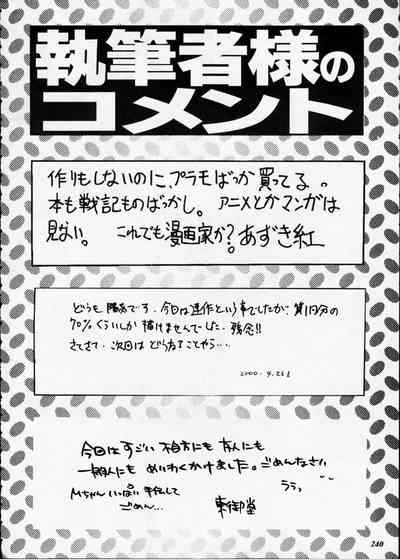 執筆者様の
コメント
作りもしないのに、プラモばっか買ってる。
本も戦記ものばっかし。アニメとかマンガは
見ない。これでも漫画家か？あずき紅
どうも 陽気です。今日は連作という事でしたが、第1回分の
70%くらいしか描けませんでした。残念!!
さてさて、次回はどうなることやら…
2000.4.23
今回はすごい 不自方にも 友人にも
一般人にも めいわくかけました。ごめんなさい
Mちゃん いっぱい 手伝して
ごめん… ううっ
東御堂
240